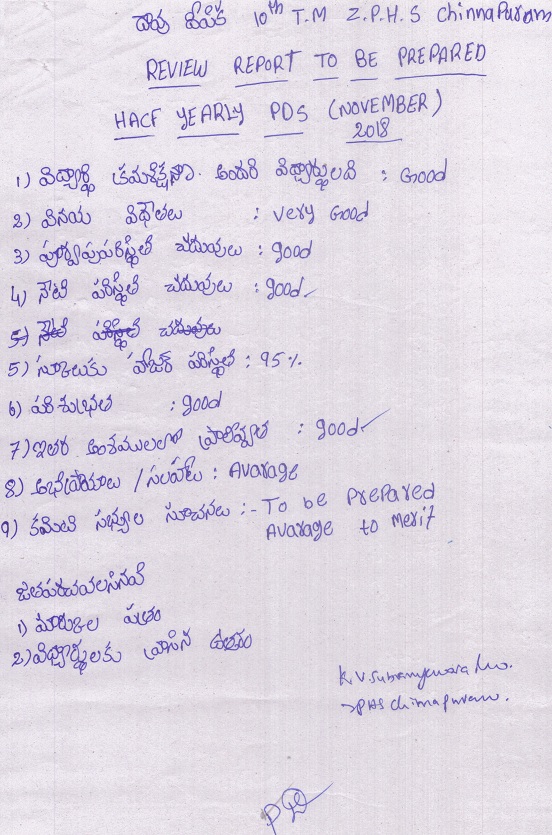 దావు దీపిక 10th T.M Z.P.H.S ChinnaPuram
REVIEW REPORT TO BE PREPARED
HACF YEARLY PDS (NOVEMBER)
2018
1) విద్యార్థి క్రమశిక్షణా. అందరి విద్యార్థులది : Good
2) వినయ విధేతలు : very Good
3) పూర్వపుపరిస్థితి చదువులు : good
4) నేటి పరిస్థితి చదువులు : good
5) నేటి పరిస్థితి చదువులు
5) స్కూలుకు హాజర్ పరిస్థితి : 95%
6) పరిశుభ్రత : good
7) ఇతర అంశములలో ప్రాతినిధ్యత : good
8) అభిప్రాయాలు / సలహాలు : Avarage
9) కమిటి సభ్యుల సూచనలు :- To be Prepared
Avarage to Merit
జతపరచవలసినవి
1) మార్కుల పత్రం
2) విద్యార్థులకు వ్రాసిన ఉత్తరం
K.V.Subramyswara
ZPHS chinapuram.